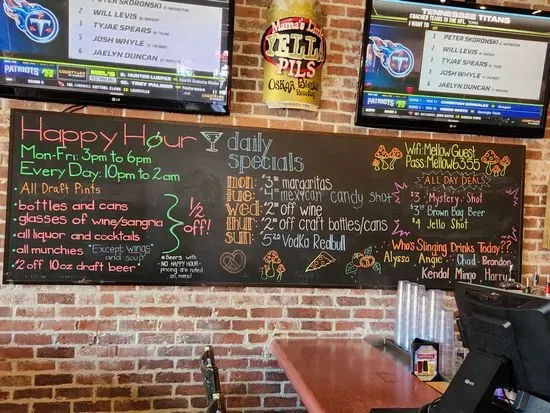 TENNESSEE TITANS
PETER SKORONSKI
2 WILL LEVIS
3 TYJAE SPEARS
5 JOSH WHYLE
6 JAELYN DUNCAN
PATRIOTS
Mama's Little
YELLA
PILS
Oskar Blues
TENNESSEE TITANS
PETER SKORONSKI
2 WILL LEVIS
3 TYJAE SPEARS
5 JOSH WHYLE
6 JAELYN DUNCAN
PATRIOTS
LG
Happy Hour
Mon-Fri: 3pm to 6pm
Every Day: 10pm to 2am
• All Draft Pints
• bottles and cans
• glasses of wine/sangria
• all liquor and cocktails
• all munchies *Except wings* and soup
• $2 off 10oz draft beer
1/2 off!
* Beers with NO HAPPY HOUR pricing are noted on menu!
daily specials
mon: $3 margaritas
tue: mexican candy shot
wed: $2 off wine
thur: $2 off craft bottles/cans
sun: 5.20 Vodka Redbull
Wifi: MellowGuest
Pass: Mellow6355
ALL DAY DEALS
$3 Mystery Shot
$3 Brown Bag Beer
$4 Jello Shot
Who's Slinging Drinks Today??
Alyssa Angie Chad Brandon
Kendal Mingo Harry